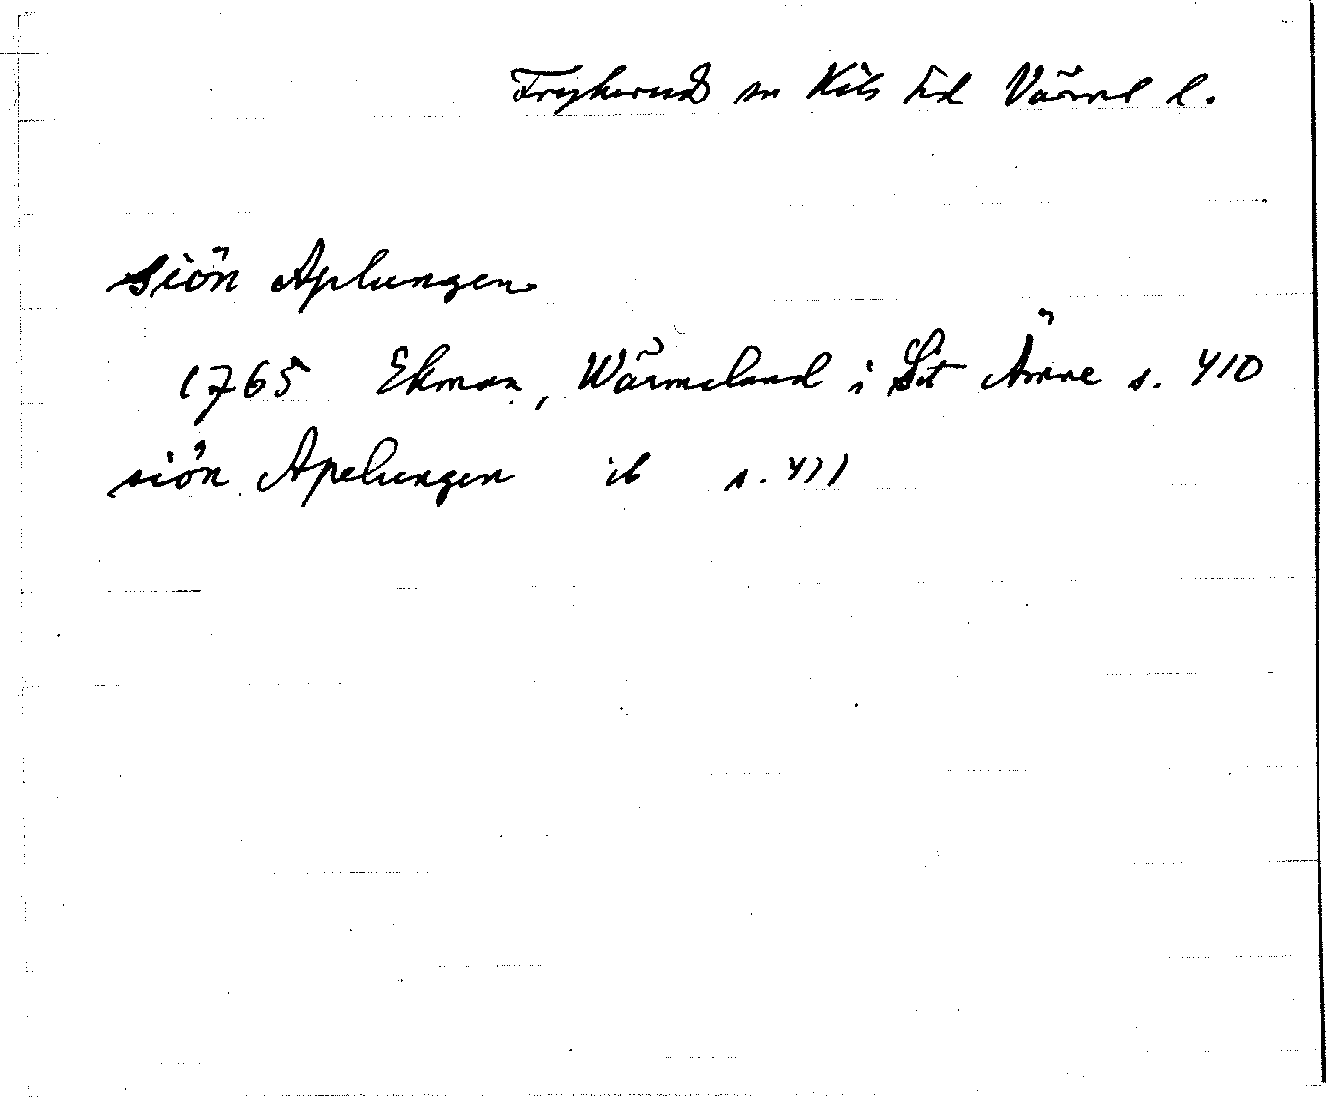 Frykerud sn Kils hd Värml l.
Siön Aplungen
1765 Ekman, Wärmeland i Sit Ämne s. 410
siön Apelungen ib s. 411